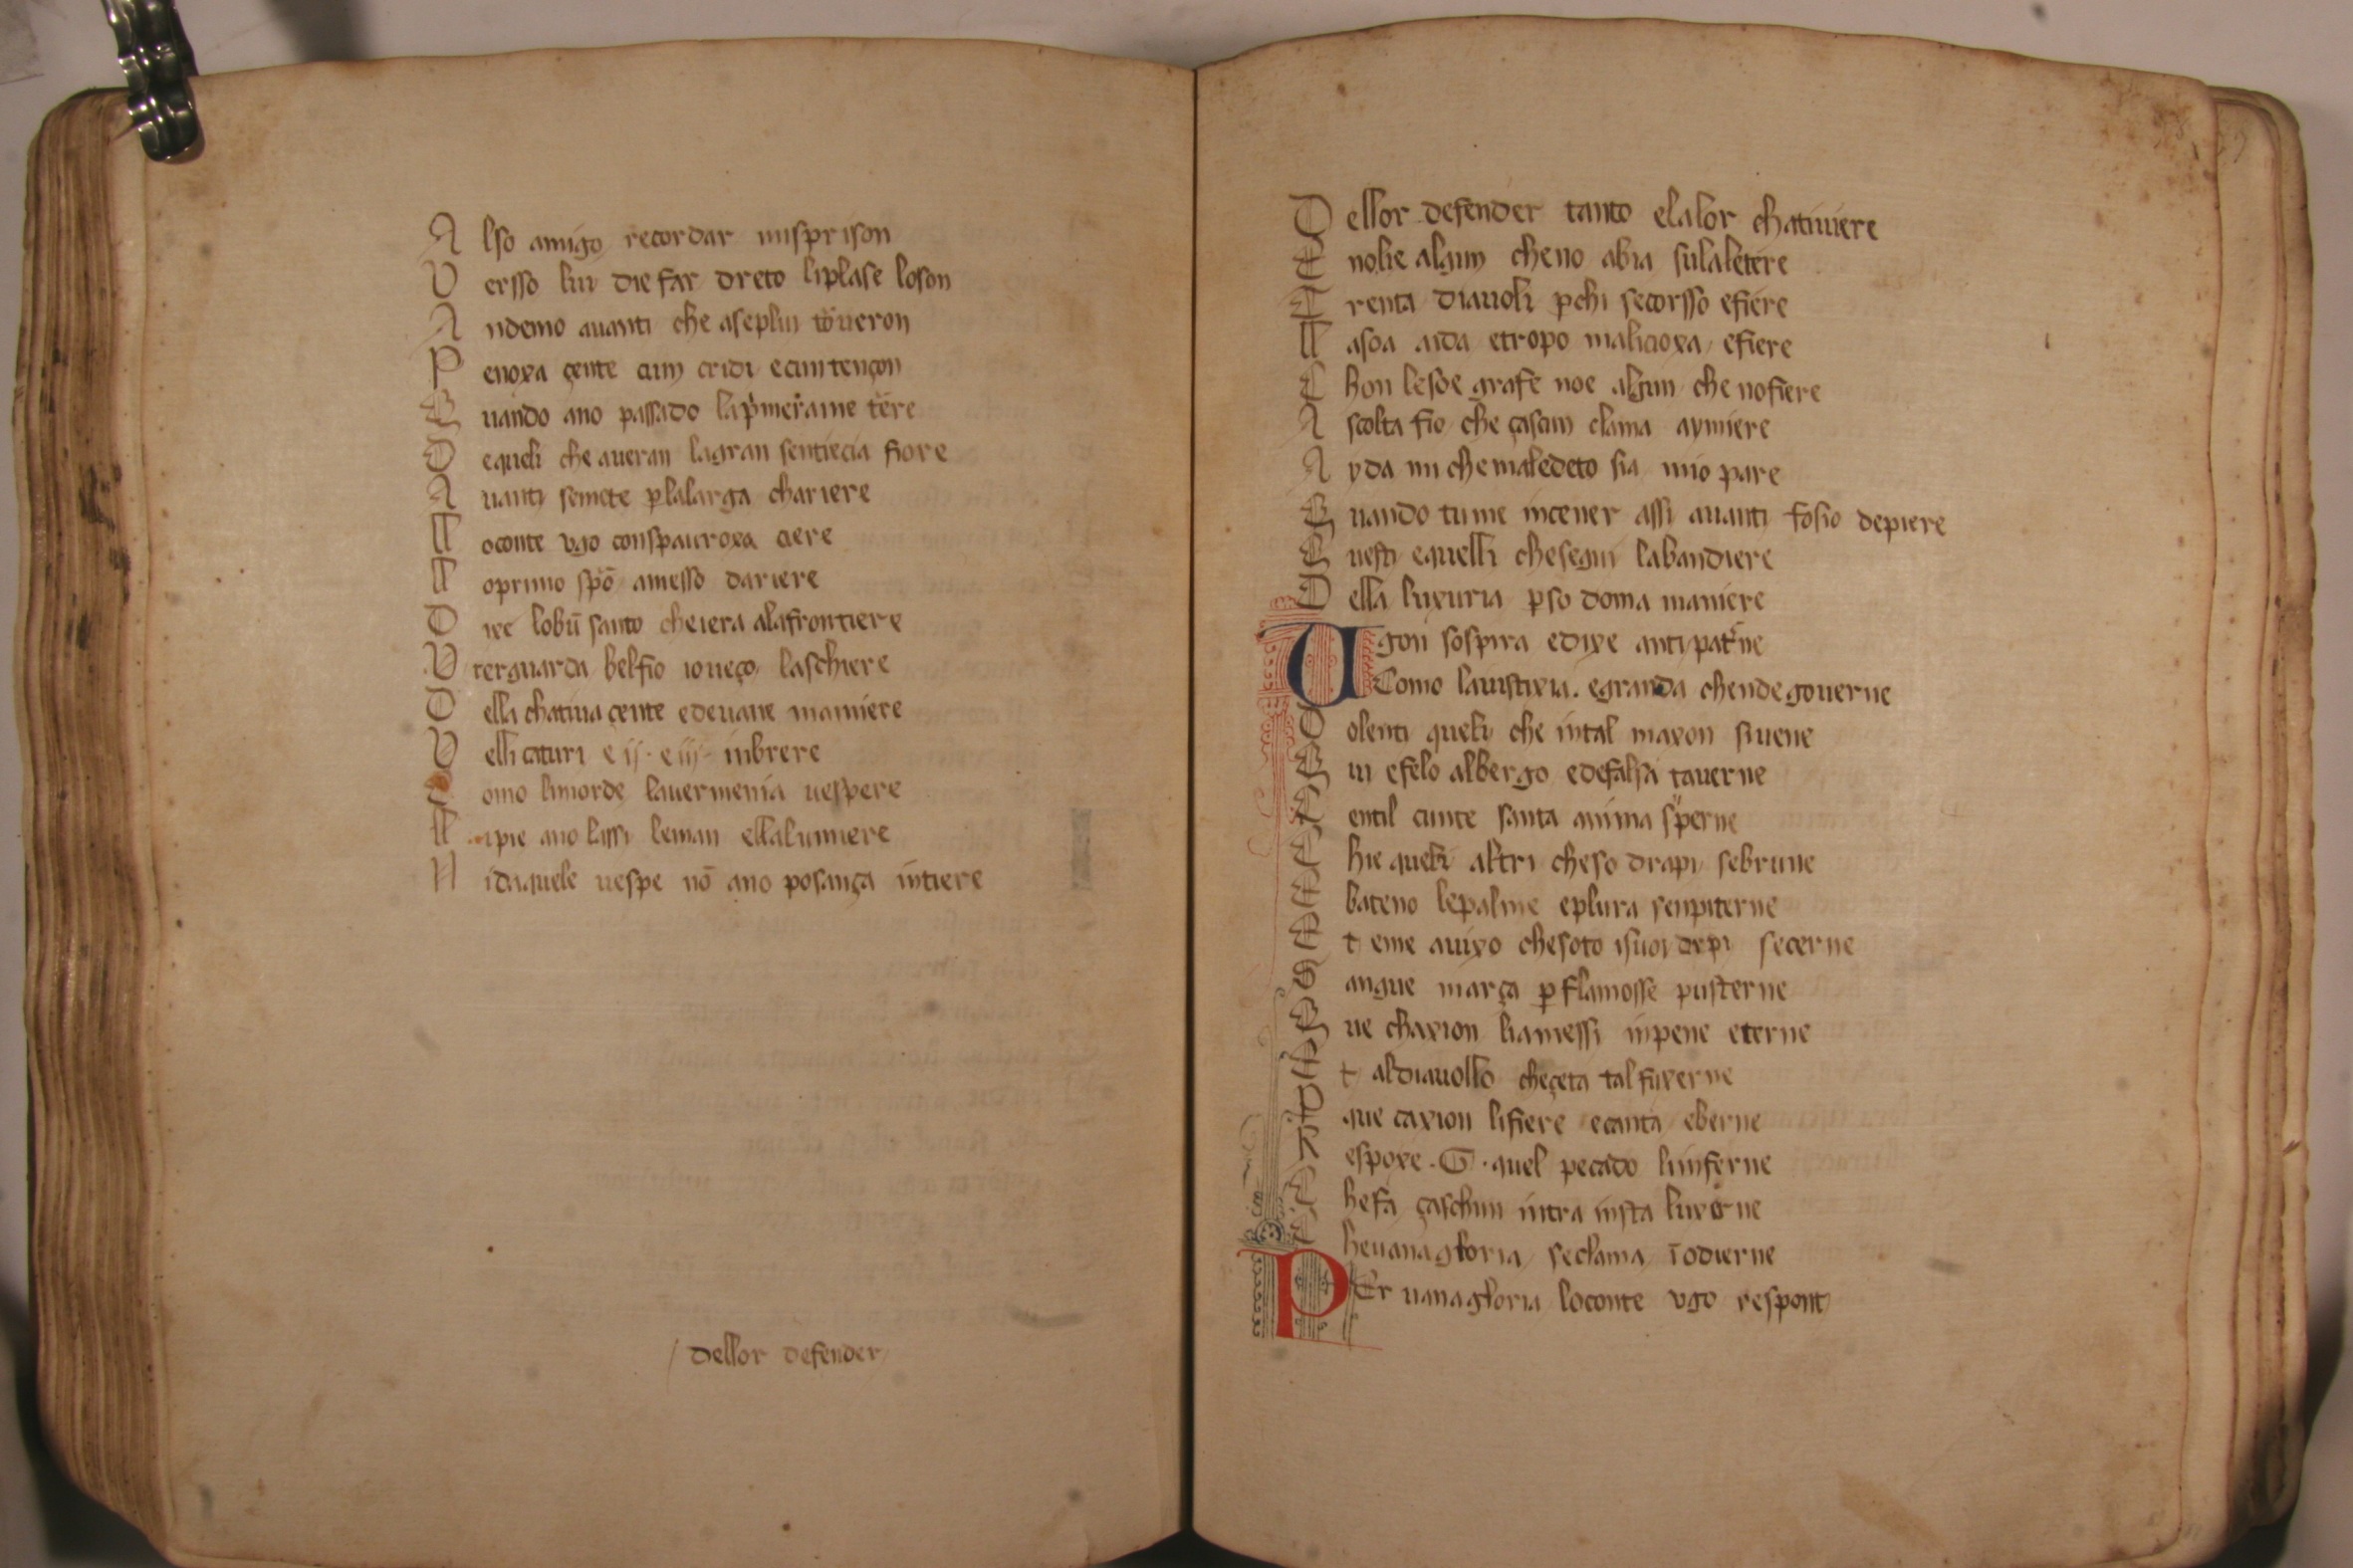 A lso amigo recordar misprison
V ersso lui die far dreto li plase loson
A ndemo auanti che aseplui toueron
P enoxa çente cum cridi e cum tençon
Q uando ano passado la p̾merame tere
D equeli che aueran la gran sentiecia fiore
A uanti semete p̱ la larga chariere
L oconte vgo conspauroxa ciere
L oprimo spō amesso dariere
D ixe lobū santo cheiera alafrontiere
V terguarda bel fio ioueço laschiere
D ella chatiua çente edeuane maniere
V elli caturi e ij · e iij · inbrere
C omo limorde lauermenia uespere
L ipie ano lassi leman ellalumiere
N idaquele uespe nō ano posança intiere
dellor defender
D ellor defender tanto elalor chatiuiere
E nolie algun cheno abia sulaletere
T renta diauoli p̱chi secorsso efiere
L asoa aida etropo malicioxa efiere
C hon lesoe grafe noe algun che nofiere
A scolta fio che çascun clama aymiere
A yda mi che maledeto sia mio pare
Q uando tume incener assi auanti fosio depiere
Q uesti equelli chesegui labandiere
D ella luxuria p̱so doma maniere
Vgon sospira edixe anti pat̾ne
Como lauistixia. egranda chende gouerne
D olenti queli che intal maxon siuene
Q ui efelo albergo edefalsa tauerne
G entil cunte santa anima sup̱erne
C hie queli altri cheso drapi sebrune
E bateno lepalme eplura senpiterne
E t eme auixo chesoto isuoi drpi secerne
S angue março p̱ flamosse pusterne
Q ue chaxion liamessi inpene eterne
E t aldiauollo cheçeta tal fuxerne
P que caxion lifiere ecanta eberne
R espoxe · G · quel pecado linferne
C hefa çaschun intra insta luxorne
C heuanagloria seclama īodierne
PEr uanagloria loconte vgo respont